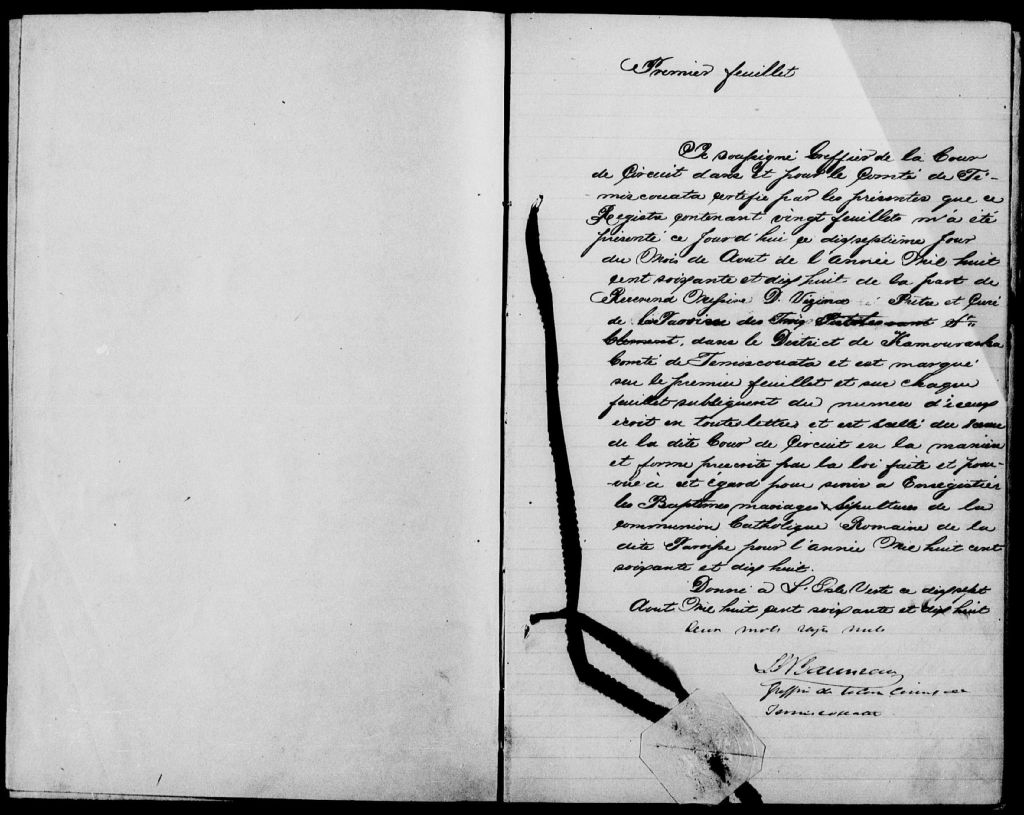 Premier feuillet
Je soussigné Greffier de la Cour
de Circuit dans et pour le Comté de Té-
-miscouata certifie par les présentes que ce
Registre contenant vingt feuillets m'a été
présenté ce jourd'hui ce dixseptième jour
du Mois de Aout de l'année Mil huit
cent soixante et dix huit de la part de
Reverend Messire D. Vezina Prêtre et Curé
de la Paroisse des Trois Pistoles St
Clement, dans le District de Kamouraska
Comté de Temiscouata et est marqué
sur le premier feuillet et sur chaque
feuillet subséquent du numero d'iceux
écrit en toutes lettres et est scellé du sceau
de la dite Cour de Circuit en la manière
et forme prescrite par la loi faite et pour-
vue à cet égard pour servir a Enregistrer
les Baptêmes mariages & Sépultures de la
communion Catholique Romaine de la
dite Paroisse pour l'année Mil huit cent
soixante et dix huit.
Donné à L'Isle Verte ce dix sept
Aout Mil huit cent soixante et dix huit
Deux mots rayés nuls
Greffier de la Cour
Temiscouata